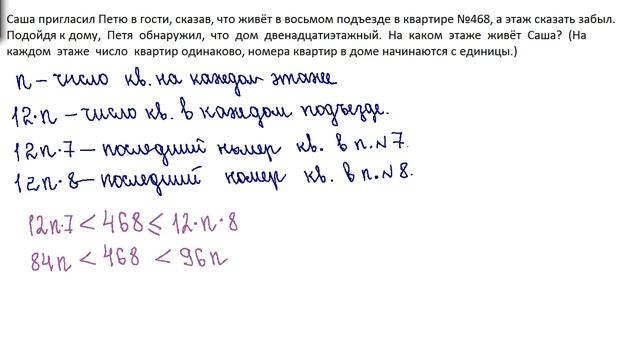 Саша пригласил Петю в гости, сказав, что живёт в восьмом подъезде в квартире №468, а этаж сказать забыл.
Подойдя к дому, Петя обнаружил, что дом двенадцатиэтажный. На каком этаже живёт Саша? (На
каждом этаже число квартир одинаково, номера квартир в доме начинаются с единицы.)
n – число кв. на каждом этаже
12·n – число кв. в каждом подъезде.
12n·7 – последний номер кв. в п.№7.
12n·8 – последний номер кв. в п.№8.
12n·7 < 468 ≤ 12·n·8
84n < 468 < 96n